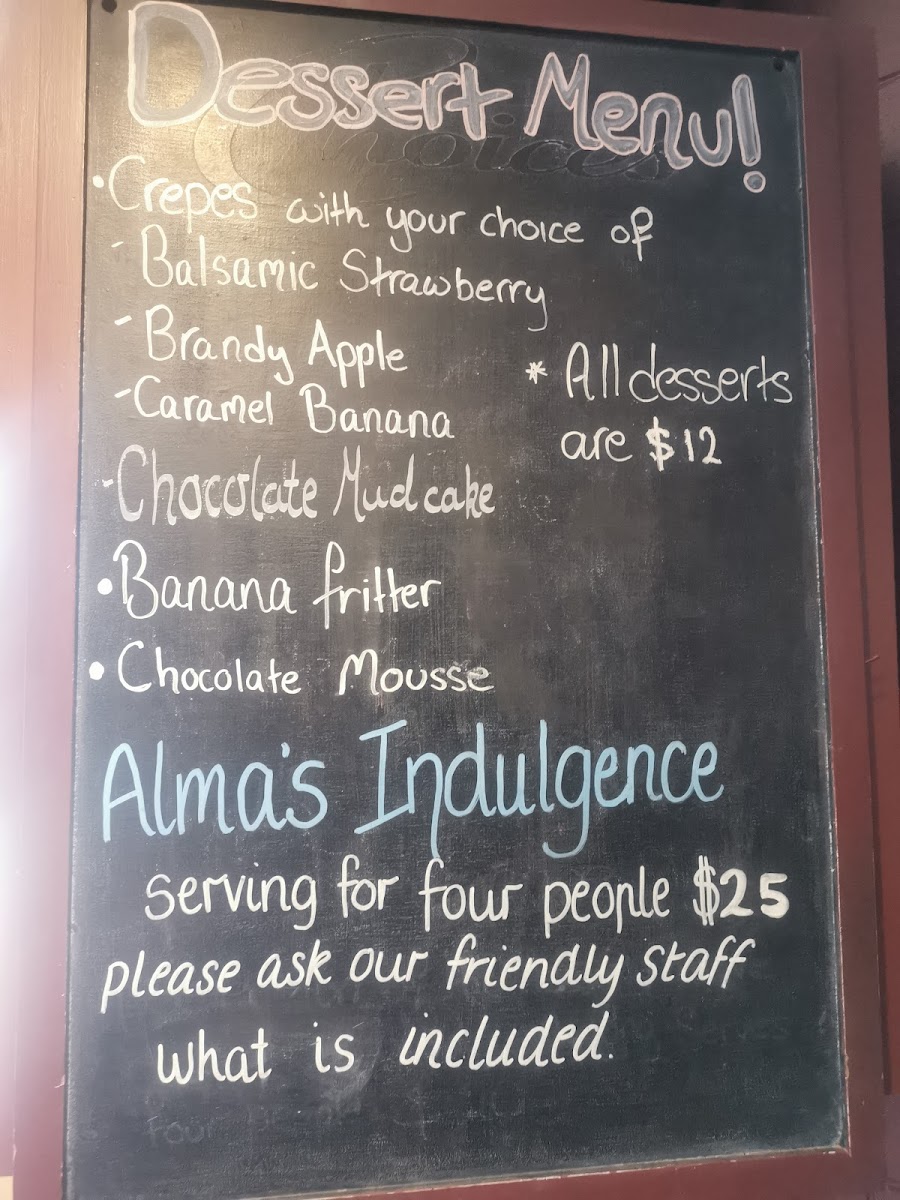 Dessert Menu!
Choices
• Crepes with your choice of
- Balsamic Strawberry
- Brandy Apple
- Caramel Banana
* All desserts
are $12
- Chocolate Mudcake
• Banana fritter
• Chocolate Mousse
Alma's Indulgence
serving for four people $25
please ask our friendly staff
what is included.